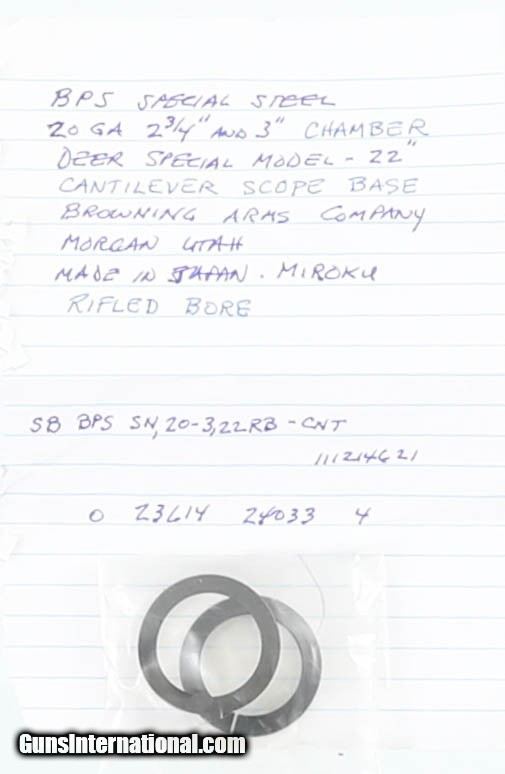 BPS SPECIAL STEEL
20 GA 2 3/4" AND 3" CHAMBER
DEER SPECIAL MODEL - 22"
CANTILEVER SCOPE BASE
BROWNING ARMS COMPANY
MORGAN UTAH
MADE IN JAPAN. MIROKU
RIFLED BORE
SB BPS SN, 20-3, 22RB - CNT
111214621
0 23614 24033 4
GunsInternational.com